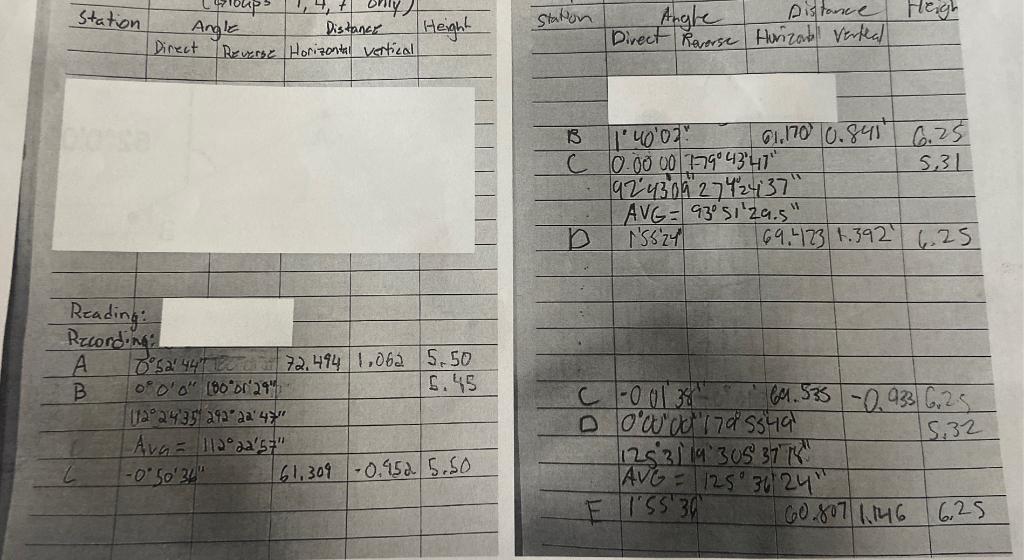 (Groups 1, 4, 7 only)
Station Angle Distance Height
Direct Reverse Horizontal vertical
Reading:
Recording:
A 0°52'44" 72.494 1.062 5.50
B 0°0'0" 180°01'29" 5.45
112°24'35" 292°22'47"
Avg = 112°22'57"
C -0°50'36" 61.309 -0.952 5.50
Station Angle Distance Heigh
Direct Reverse Horizontal Vertical
B 1°40'02" 61.170' 0.841' 6.25
C 5.31
92°43'09" 274°24'37"
AVG = 93°51'29.5"
D 1°55'24" 69.423 1.392' 6.25
C 69.535 -0.933 6.25
D 0°00'00" 179°55'49" 5.32
125°31'19" 305°37'18"
AVG = 125°36'24"
E 1°55'36 60.807 1.146 6.25